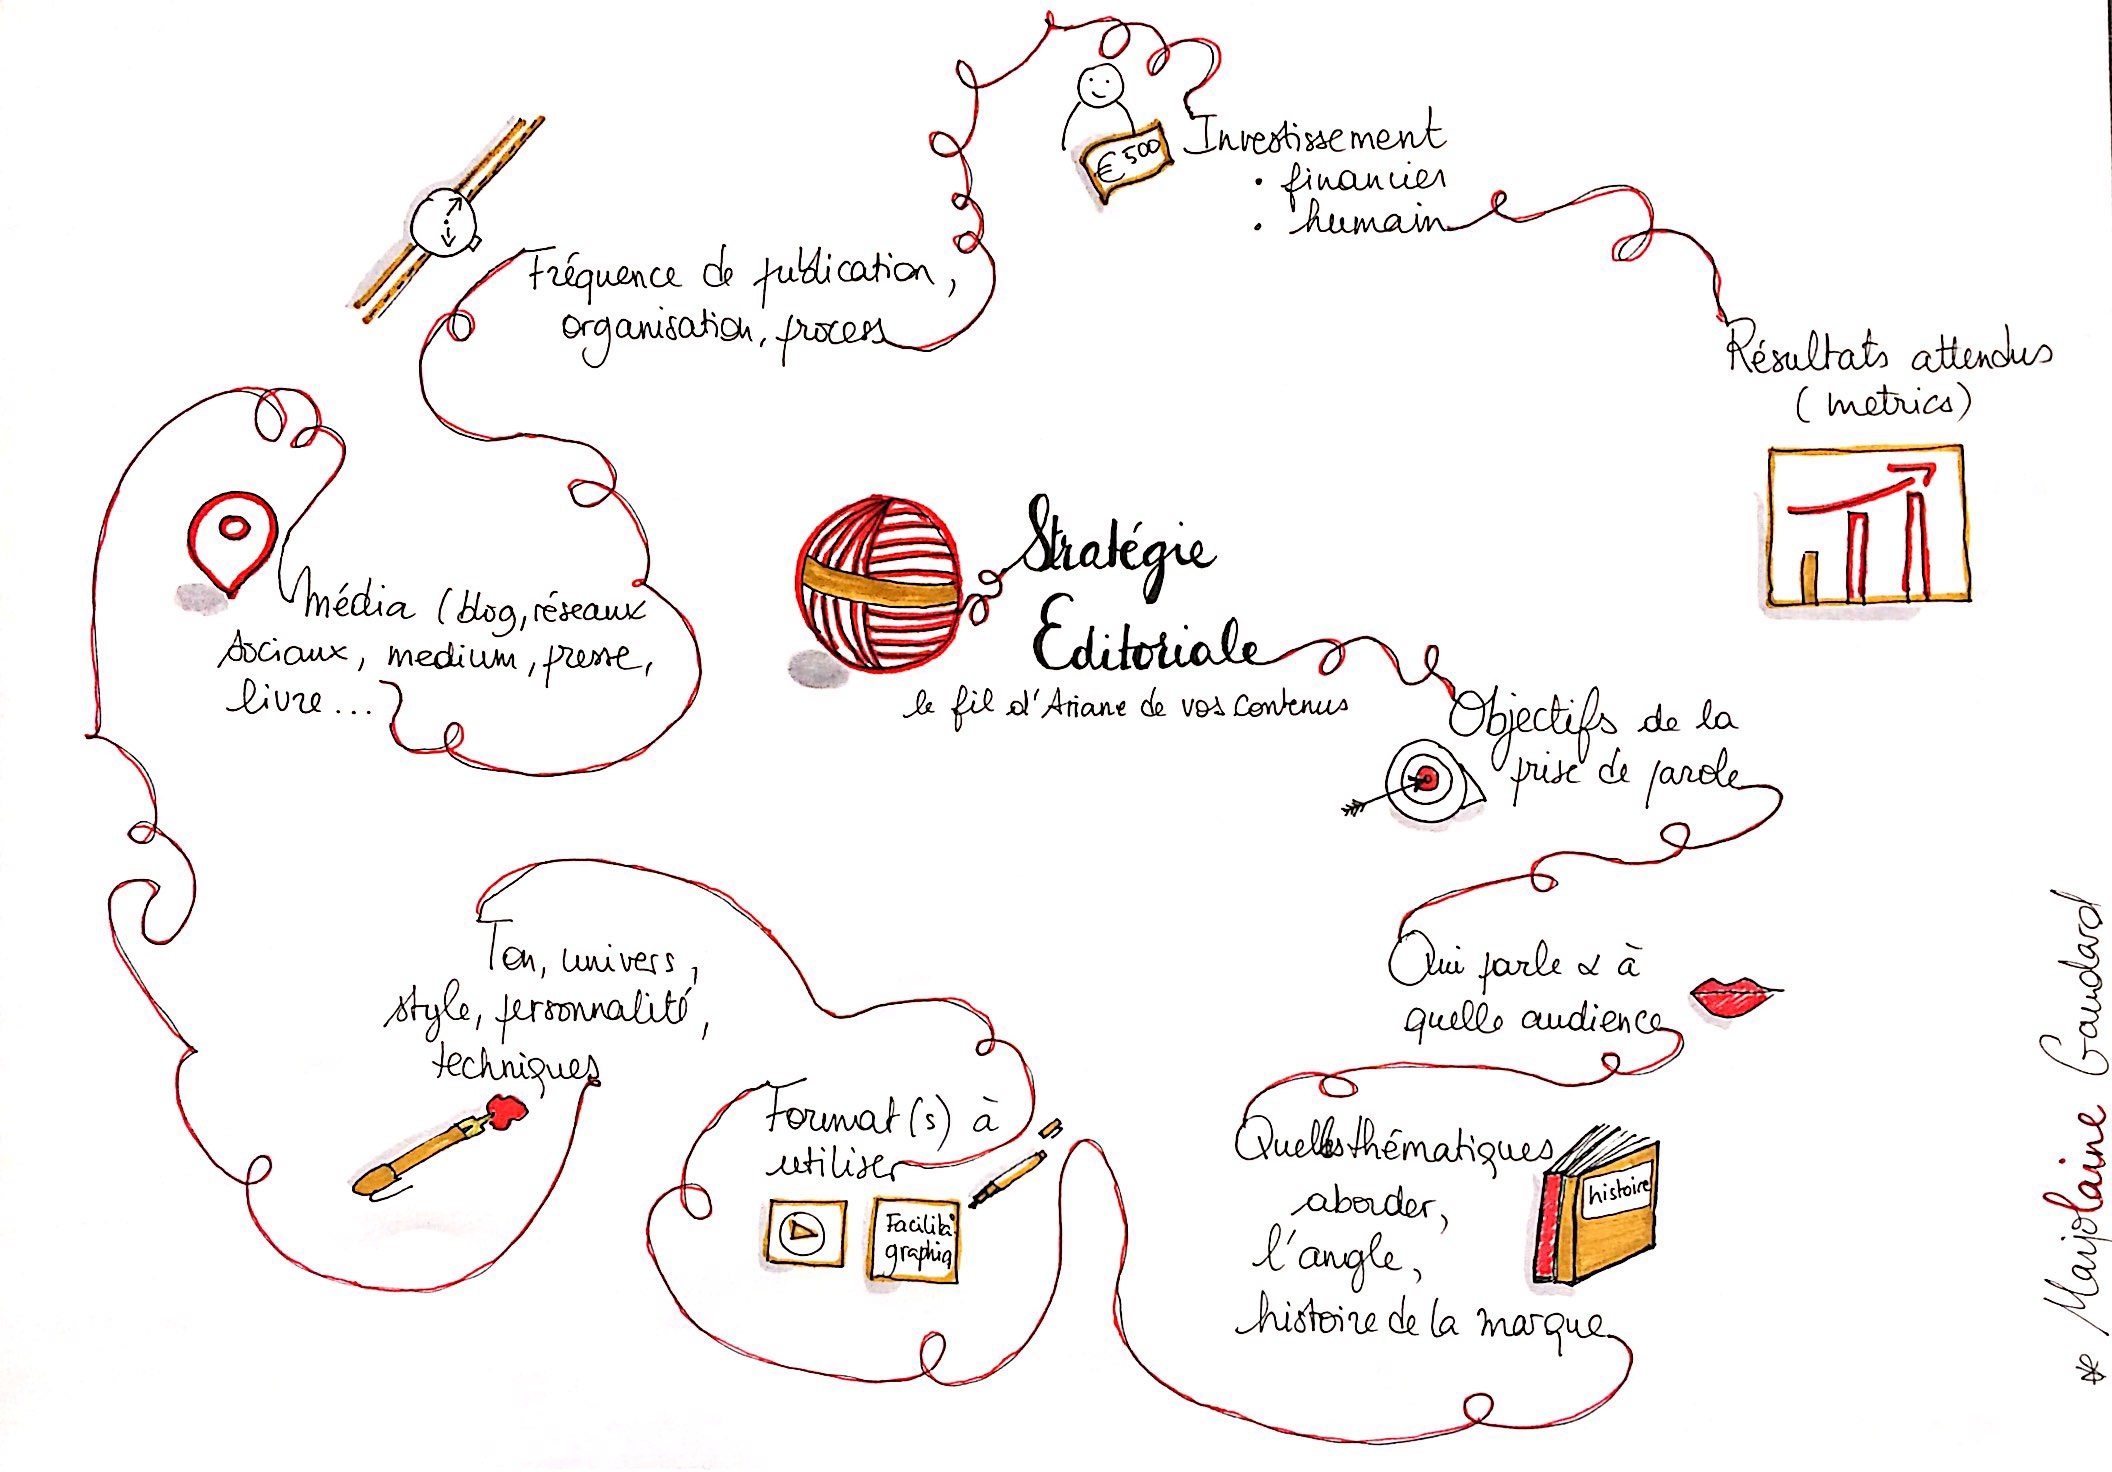 Stratégie
Editoriale
le fil d'Ariane de vos contenus
Objectifs de la
prise de parole
Qui parle & à
quelle audience
Quelles thématiques
aborder,
l'angle,
histoire de la marque
histoire
Format(s) à
utiliser
Facilita
graphiq
Ton, univers,
style, personnalité,
techniques
Média (blog, réseaux
sociaux, medium, presse,
livre...
Fréquence de publication,
organisation, process
Investissement
• financier
• humain
€ 500
Résultats attendus
(metrics)
* Marjolaine Gaudard